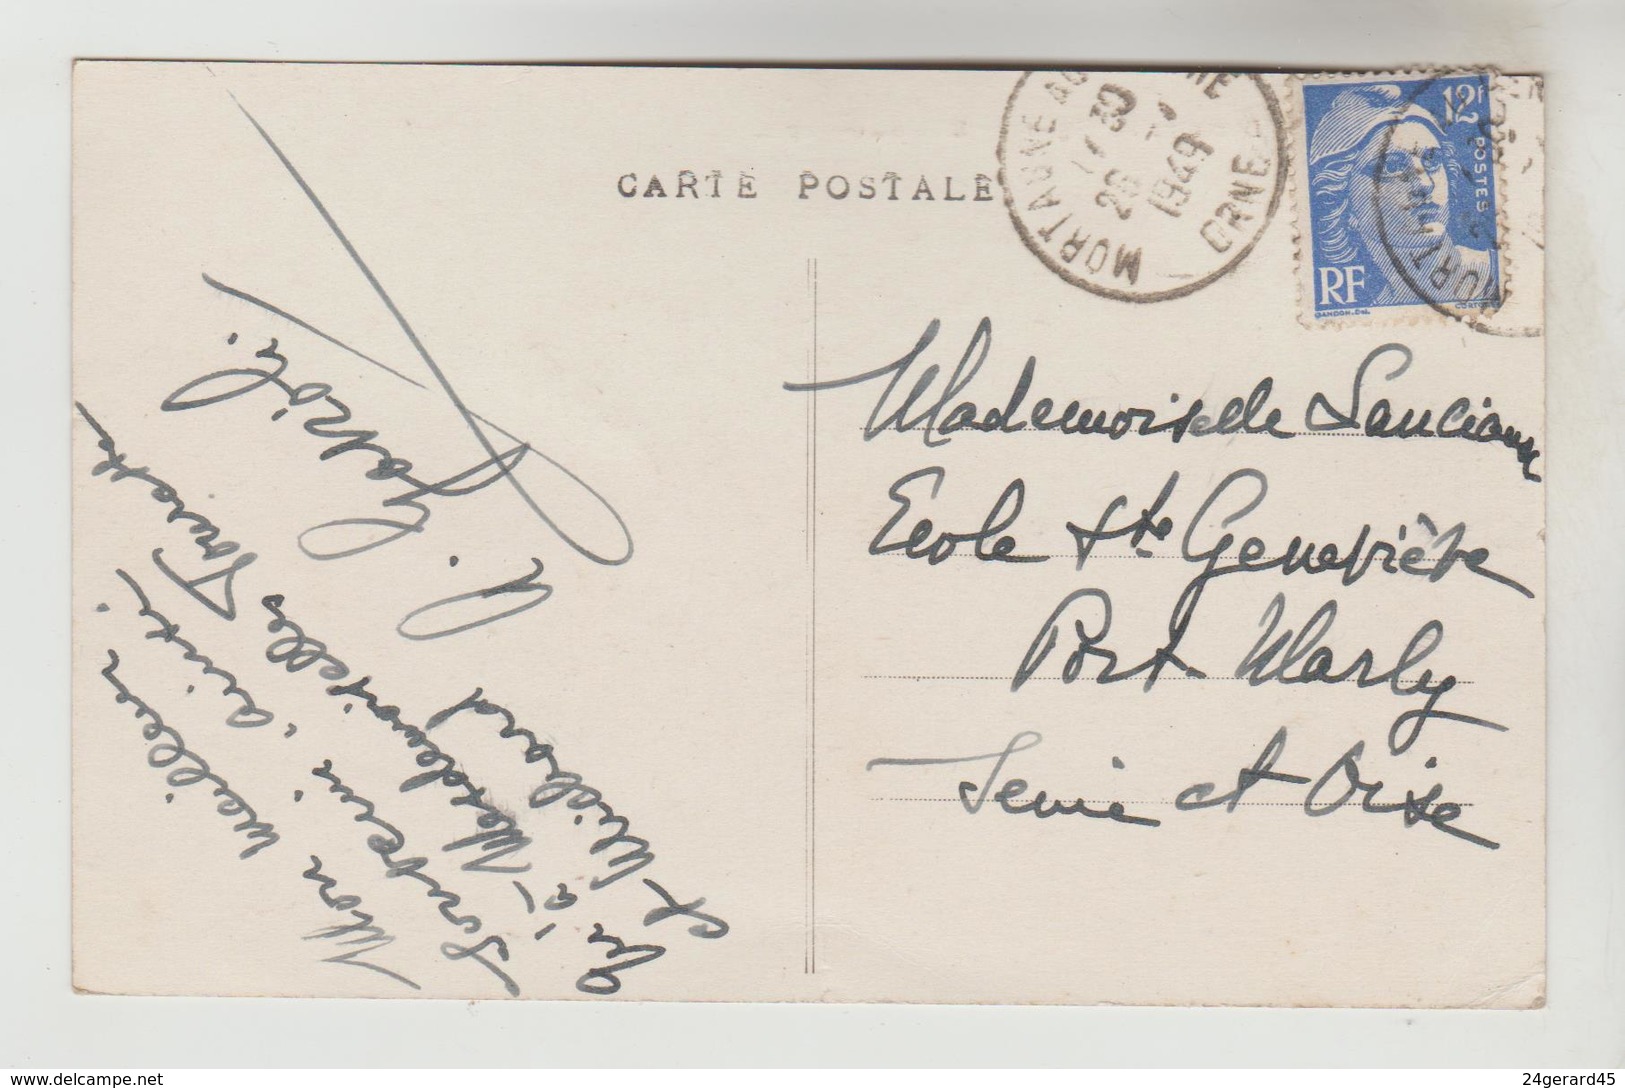 CARTE POSTALE
MORTAGNE AU PERCHE
28
1949
ORNE
12f
POSTES
RF
GANDON.Del.
Mon meilleur
souvenir, ainsi
qu'à Mesdemoiselles
et
Mademoiselle
Ecole Ste Geneviève
Port Marly
Seine et Oise
www.delcampe.net
24gerard45